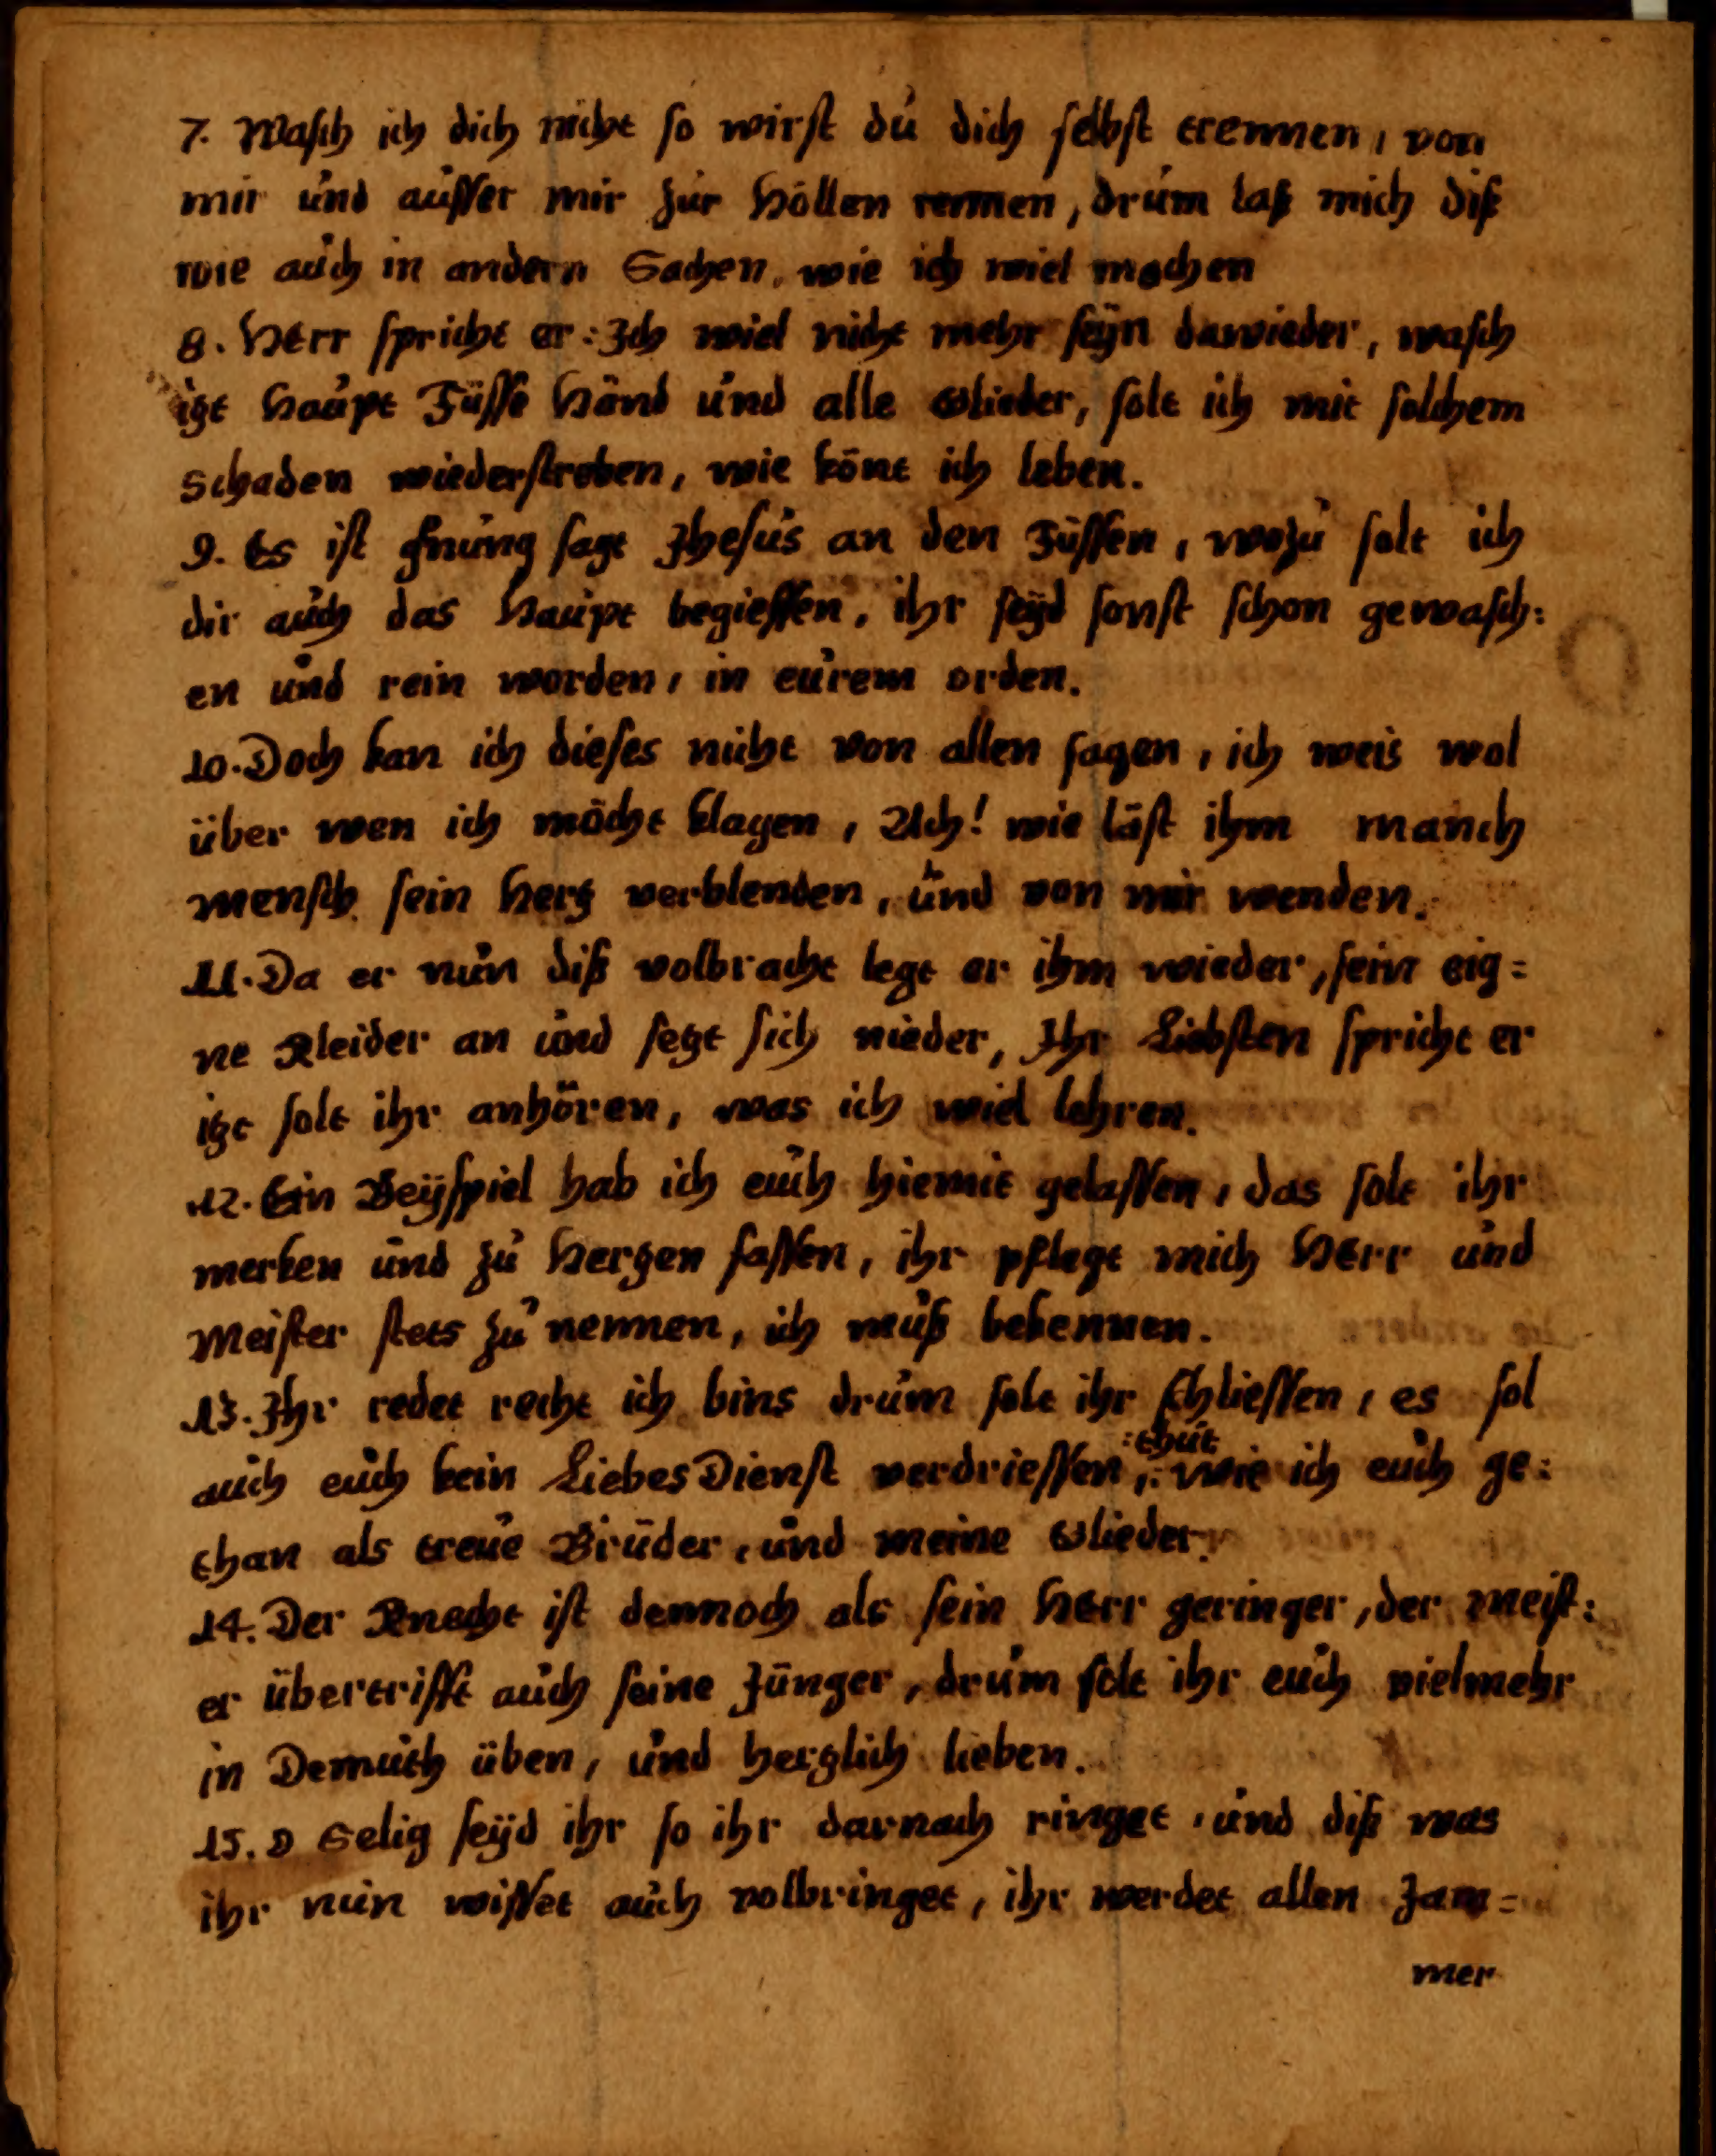 7. Wasch ich dich nicht so wirst du dich selbst trennen, von
mir und ausser mir zur Höllen rennen, drum laß mich diß
wie auch in andern Sachen, wie ich wiel machen
8. HErr spricht er: Ich wiel nicht mehr seyn dawieder, wasch
itzt Haupt Füsse Händ und alle Glieder, solt ich mit solchem
Schaden wiederstreben, wie könt ich leben.
9. Es ist gnung sagt Jhesus an den Füssen, wozu solt ich
dir auch das Haupt begiessen, ihr seyd sonst schon gewasch:
en und rein worden, in eurem orden.
10. Doch kan ich dieses nicht von allen sagen, ich weis wol
über wen ich möcht klagen, Ach! wie läst ihm manch
mensch sein Hertz verblenden, und von mir wenden.
11. Da er nun diß volbracht legt er ihm wieder, sein eig=
ne Kleider an und setzt sich nieder, Ihr Liebsten spricht er
itzt solt ihr anhören, was ich wiel lehren.
12. Ein Beyspiel hab ich euch hiemit gelassen, das solt ihr
merken und zu Hertzen fassen, ihr pflegt mich HErr und
Meister stets zu nennen, ich muß bekennen.
13. Ihr redet recht ich bins drum solt ihr schliessen, es sol
auch euch kein LiebesDienst verdriessen, :thut: wie ich euch ge:
than als treue Brüder, und meine Glieder.
14. Der Knecht ist dennoch als sein Herr geringer, der meist:
er übertrifft auch seine Jünger, drum solt ihr euch vielmehr
in Demuth üben, und hertzlich lieben.
15. O Selig seyd ihr so ihr darnach ringet, und diß was
ihr nun wisset auch volbringet, ihr werdet allen Jam=
mer